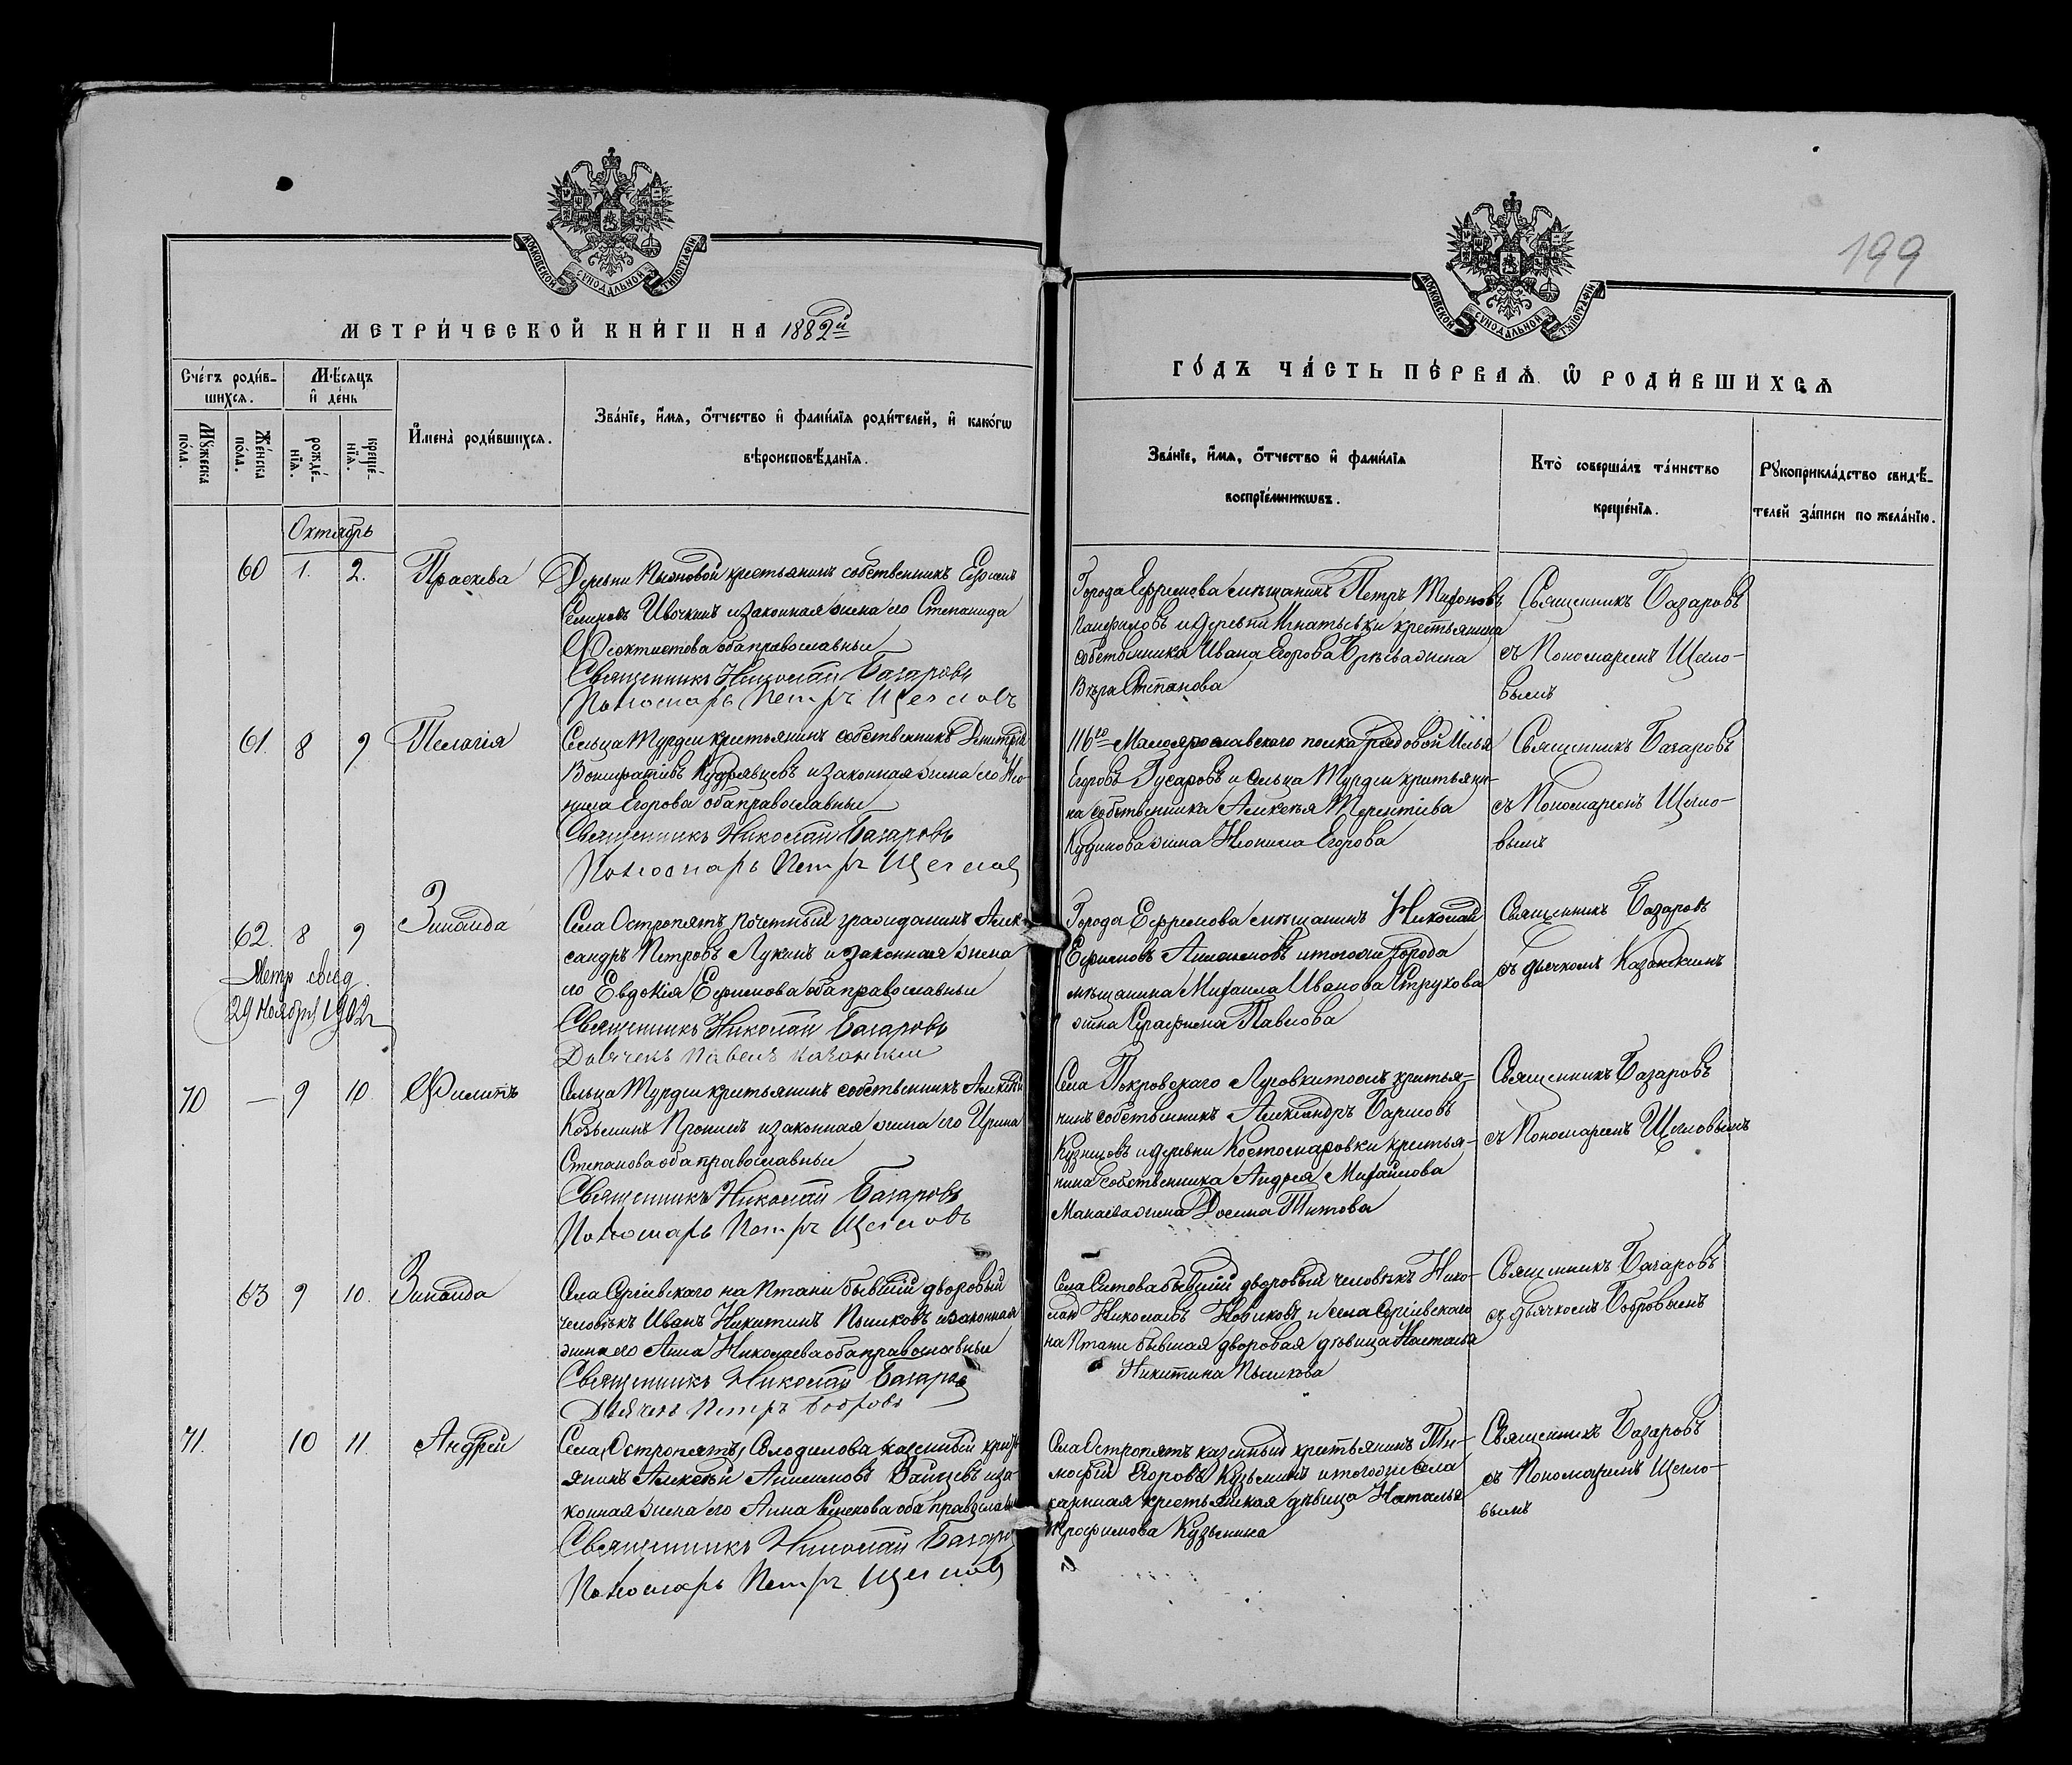 199
МОСКОВСКОЙ СѴНОДАЛЬНОЙ ТИПОГРАФІИ
МОСКОВСКОЙ СѴНОДАЛЬНОЙ ТИПОГРАФІИ
МЕТРИ́ЧЕСКОЙ КНИ́ГИ НА 1882й
ГО́ДЪ ЧА́СТЬ ПЕ́РВАѦ Ѡ РОДИ́ВШИХСѦ
Сче́тъ роди́в-
шихсѧ.
Мꙋжеска по́ла.
Же́нска по́ла.
Мѣ́сѧцъ
и҆ де́нь
рожде́-
нїѧ.
креще́-
нїѧ.
И҆мена̀ роди́вшихсѧ.
Зва́нїе, и҆́мѧ, ѻ҆́тчество и҆ фами́лїѧ роди́телей, и҆ како́гѡ
вѣроисповѣ́данїѧ.
Зва́нїе, и҆́мѧ, ѻ҆́тчество и҆ фами́лїѧ
воспрїе́мникѡвъ.
Кто̀ соверша́лъ та́инство
креще́нїѧ.
Рꙋкоприкла́дство свидѣ́-
телей за́писи по жела́нїю.
Октябрь
60 1. 2. Праскева
Деревни собственникъ
Ивочкинъ и законная жена его Степанида
Феоктистова оба православные
Священникъ Николай Базаровъ
Пономарь Петръ Щегловъ
Города Ефремова мѣщанинъ Петръ
Панфиловъ и деревни Игнатьевки крестьянина
собственника Ивана Егорова жена
Вѣра Степанова
Священникъ Базаровъ
съ Пономаремъ Щегло-
вымъ
61. 8 9 Пелагія
Сельца Турдеи крестьянинъ собственникъ Димитрій
Вонифатьевъ Кудрявцевъ и законная жена его Нео-
нила Егорова оба православные
Священникъ Николай Базаровъ
Пономарь Петръ Щегловъ
116го Малоярославскаго полка рядовой Илья
Егоровъ Гусаровъ и сельца Турдеи крестьяни-
на собственника Алексѣя Терентіева
Кудинова жена Неонила Егорова
Священникъ Базаровъ
съ Пономаремъ Щегло-
вымъ
62. 8 9 Зинаида
Метр. свид.
29 Ноября 1902 г
Села Остропятъ почетный гражданинъ Алек-
сандръ Петровъ Лукинъ и законная жена
его Евдокія Ефимова оба православные
Священникъ Николай Базаровъ
Дьячекъ Павелъ Казанскій
Города Ефремова мѣщанинъ Николай
Ефимовъ и того же города
мѣщанина Михаила Иванова Струкова
жена Серафима Павлова
Священникъ Базаровъ
съ дьячкомъ Казанскимъ
70 — 9 10. Филипъ
Сельца Турдеи крестьянинъ собственникъ Алексѣй
Козьминъ Пронинъ и законная жена его Ирина
Степанова оба православные
Священникъ Николай Базаровъ
Пономарь Петръ Щегловъ
Села Покровскаго крестья-
нинъ собственникъ Александръ
Кузнецовъ и деревни Костомаровки крестья-
нина собственника Андрея Михайлова
Манаева жена Титова
Священникъ Базаровъ
съ Пономаремъ Щегловымъ
63 9 10. Зинаида
Села Сергіевскаго на Птани бывшій дворовый
человѣкъ Иванъ Никитинъ Пышковъ и законная
жена его Анна Николаева оба православные
Священникъ Николай Базаровъ
Дьячекъ Петръ Бобровъ
Села Ситова бывшій дворовый человѣкъ Нико-
лай Николаевъ Новиковъ и села Сергіевскаго
на Птани бывшая дворовая дѣвица Наталья
Никитина Пышкова
Священникъ Базаровъ
съ дьячкомъ Бобровымъ
71. 10 11. Андрей
Села Остропятъ, Солодилова казенный кресть-
янинъ Алексѣй Анисимовъ Зайцевъ и за-
конная жена его Анна Семенова оба православные
Священникъ Николай Базаровъ
Пономарь Петръ Щегловъ
Села Остропятъ казенный крестьянинъ Ти-
мофей Егоровъ Кузьминъ и того же села
казенная крестьянская дѣвица Наталья
Трофимова Кузьмина
Священникъ Базаровъ
съ Пономаремъ Щегло-
вымъ